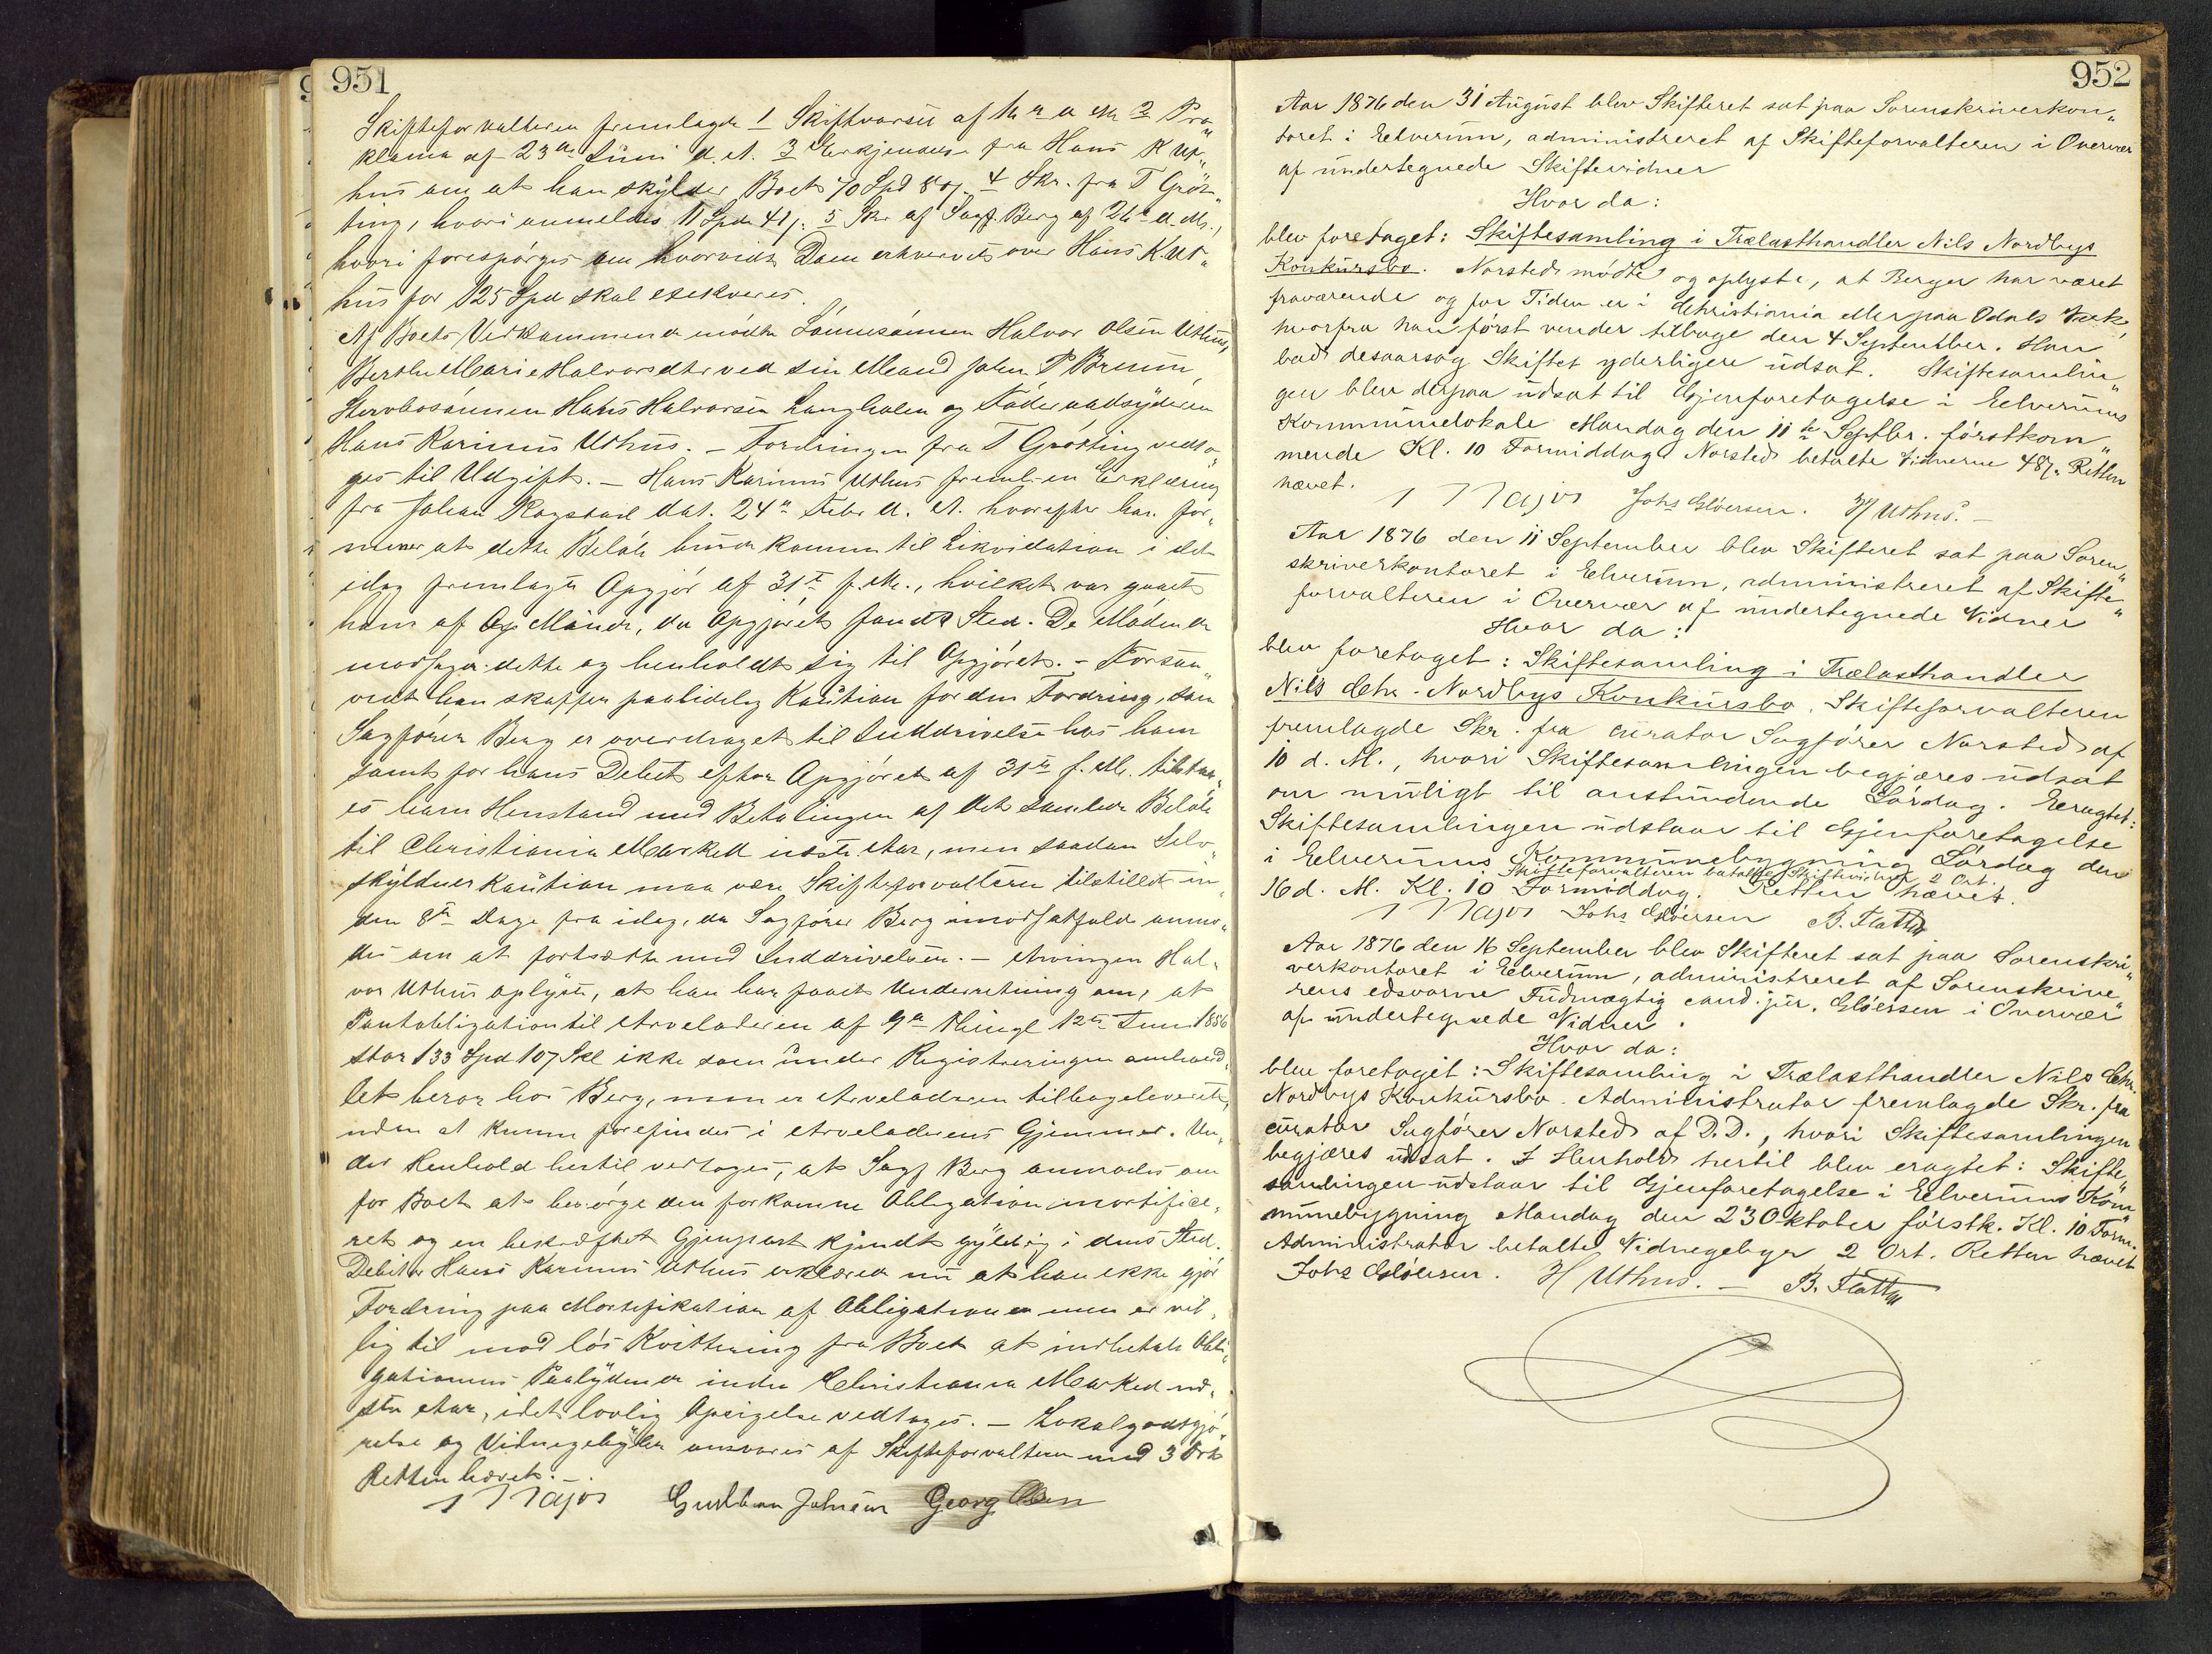 951
Skifteforvalteren fremlagde 1 Skiftvarsel af 2 Pro„
klama af 23de Juni d. A. 3 Erkjendelse fra Hans K Ut„
hus om at han skylder Boet 70 Spd 4 Skr. fra T Grøt„
ting, hvori anmeldes 11 Spd 41 5 Skr af Sagf. Berg af 26 d. M.,
hvori forespørges om hvorvidt Dom erhvervet over Hans K Ut„
hus for 125 Spd skal exekveres.
Af Boets Vedkommende mødte Sønnesønnen Halvor Olsen Uthus,
Berthe Marie Halvorsdtr ved sin Mand Johan P Brenn,
Stervbosønnen Hans Halvorsen Langholen og Føderaadsyderen
Hans Karinus Uthus. – Fordringen fra T Grøtting vedto„
ges til Udgift. – Hans Karinus Uthus freml. en Erklæring
fra Johan Rogstad dat. 24de Febr d. A. hvorefter han for„
mener at dette Beløb burde komme til Likvidation i det
idag fremlagte Opgjør af 31te f. M., hvilket var gjaaet
ham af Minde, da Opgjøret fandt Sted. De Mødende
modsagde dette og henholdt sig til Opgjøret. – Forsaa„
vidt han skaffer paalidelig Kaution for den Fordring, som
Sagfører Berg er overdraget til Inddrivelse hos ham
samt for hans Debet efter Opgjøret af 31te f. M. tilstaa„
es ham Henstand med Betalingen af det samlede Beløb
til Christiania Marked næste Aar, men saadan Selv„
skyldnerkaution maa være Skifteforvalteren tilstillet in„
den 8te Dage fra idag, da Sagfører Berg i modsat fald anmo„
des om at fortsætte med Inddrivelsen. – Arvingen Hal„
vor Uthus oplyste, at han har faaet Underretning om, at
Pantobligation til Arveladeren af 9de Thingl 12te Juni 1856
stor 133 Spd 107 Skl ikke som under Registreringen omhand„
let beror hos Berg, men er Arveladeren tilbageleveret,
uden at kunne forefindes i Arveladerens Gjemmer. Un„
der Henhold hertil vedtoges, at Sagf Berg anmodes om
for Boet at besørge den forkomne Obligation mortifice„
ret og en bekræftet Gjenpart kjendt gyldig i dens Sted.
Debitor Hans Karinus Uthus erklærer nu at han ikke gjør
Fordring paa Mortifikation af Obligationen men er vil„
lig til mod løs Kvittering fra Boet at indbetale Obli„
gationens Paalydende inden Christiania Marked næ„
ste Aar, idet lovlig Opsigelse vedtoges. – Lokalgodtgjø„
relse og Vidnegebyhr ansvares af Skifteforvalteren med 3 Ort
Retten hævet. –
Major Gulbran Johnsen Georg Olsen
952
Aar 1876 den 31 August blev Skifteret sat paa Sorenskriverkon„
toret i Elverum, administreret af Skifteforvalteren i Overvær
af undertegnede Skiftevidner
Hvor da:
blev foretaget: Skiftesamling i Trælasthandler Nils Nordbys
Konkursbo. Norsted mødte og oplyste, at Berger har været
fraværende og for Tiden er i Christiania eller paa Odals Værk,
hvorfra han først vender tilbage den 4 September. Han
bad desaarsag Skiftet yderligere udsat. Skiftesamlin„
gen blev derpaa udsat til Gjenforetagelse i Elverums
Kommunelokale Mandag den 11te Septbr. førstkom„
mende Kl. 10 Formiddag Norsted betalte Vidnerne 48 Retten
hævet.
Major Johs Gløersen. H Uthus. –
Aar 1876 den 11 September blev Skifteret sat paa Soren„
skriverkontoret i Elverum, administreret af Skifte„
forvalteren i Overvær af undertegnede Vidner
Hvor da:
blev foretaget: Skiftesamling i Trælasthandler
Nils Chr. Nordbys Konkursbo. Skifteforvalteren
fremlagde Skr. fra curator Sagfører Norsted af
10 d. M., hvori Skiftesamlingen begjæres udsat
om muligt til anstundende Lørdag. Eragtet:
Skiftesamlingen udstaar til Gjenforetagelse
i Elverums Kommunebygning Lørdag den
Skifteforvalteren betalte Skiftevidner 2 Ort.
16 d. M. Kl. 10 Formiddag. Retten hævet.
Major Johs Gløersen B. Flatten
Aar 1876 den 16 September blev Skifteret sat paa Sorenskri„
verkontoret i Elverum, administreret af Sorenskrive„
rens edsvorne Fuldmægtig cand. jur. Gløersen i Overvær
af undertegnede Vidner.
Hvor da:
blev foretaget: Skiftesamling i Trælasthandler Nils Chr.
Nordbys Konkursbo. Administrator fremlagde Skr. fra
curator Sagfører Norsted af D.D., hvori Skiftesamlingen
begjæres udsat. I Henhold hertil blev eragtet: Skifte„
samlingen udstaar til Gjenforetagelse i Elverums Kom„
munebygning Mandag den 23 Oktober førstk. Kl. 10 Form.
Administrator betalte Vidnegebyr 2 Ort. Retten hævet
Johs Gløersen. H Uthus. – B. Flatten